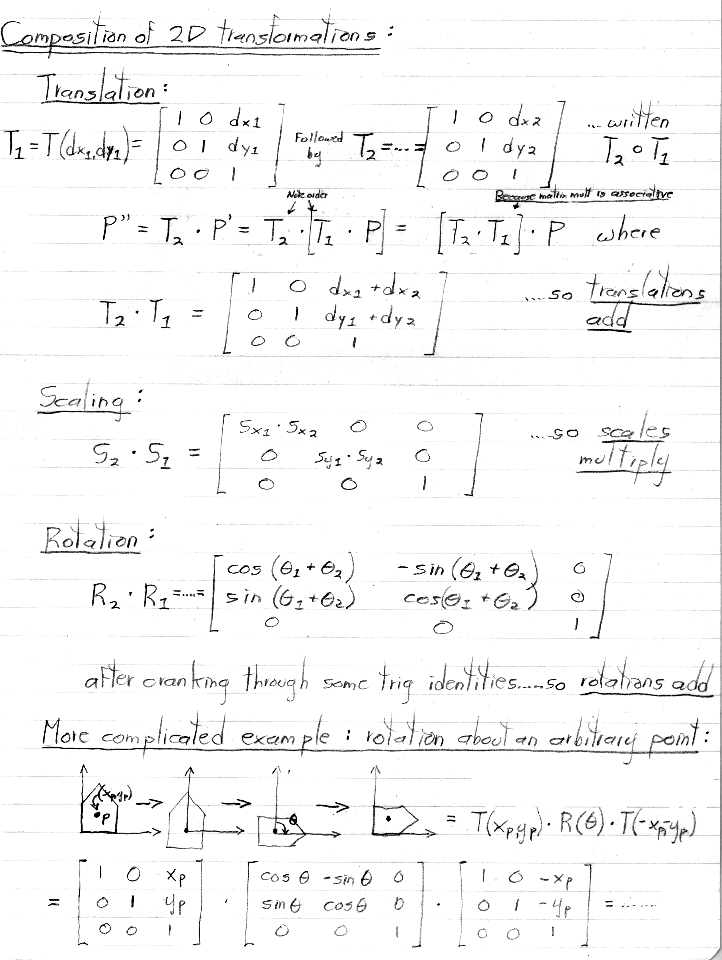 Composition of 2D transformations:
Translation:
T₁ = T(dx₁,dy₁) = [1 0 dx1; 0 1 dy1; 0 0 1] Followed by T₂ = ... = [1 0 dx2; 0 1 dy2; 0 0 1] ...written T₂ ∘ T₁
Note order
Because matrix mult is associative
P'' = T₂ · P' = T₂ · [T₁ · P] = [T₂ · T₁] · P where
T₂ · T₁ = [1 0 dx1+dx2; 0 1 dy1+dy2; 0 0 1] ....so translations add
Scaling:
S₂ · S₁ = [Sx1·Sx2 0 0; 0 Sy1·Sy2 0; 0 0 1] ....so scales multiply
Rotation:
R₂ · R₁ = .... = [cos(θ₁+θ₂) -sin(θ₁+θ₂) 0; sin(θ₁+θ₂) cos(θ₁+θ₂) 0; 0 0 1]
after cranking through some trig identities.....so rotations add
More complicated example: rotation about an arbitrary point:
(xp,yp) P → → θ → = T(xp,yp) · R(θ) · T(-xp,-yp)
= [1 0 xp; 0 1 yp; 0 0 1] · [cosθ -sinθ 0; sinθ cosθ 0; 0 0 1] · [1 0 -xp; 0 1 -yp; 0 0 1] = ......